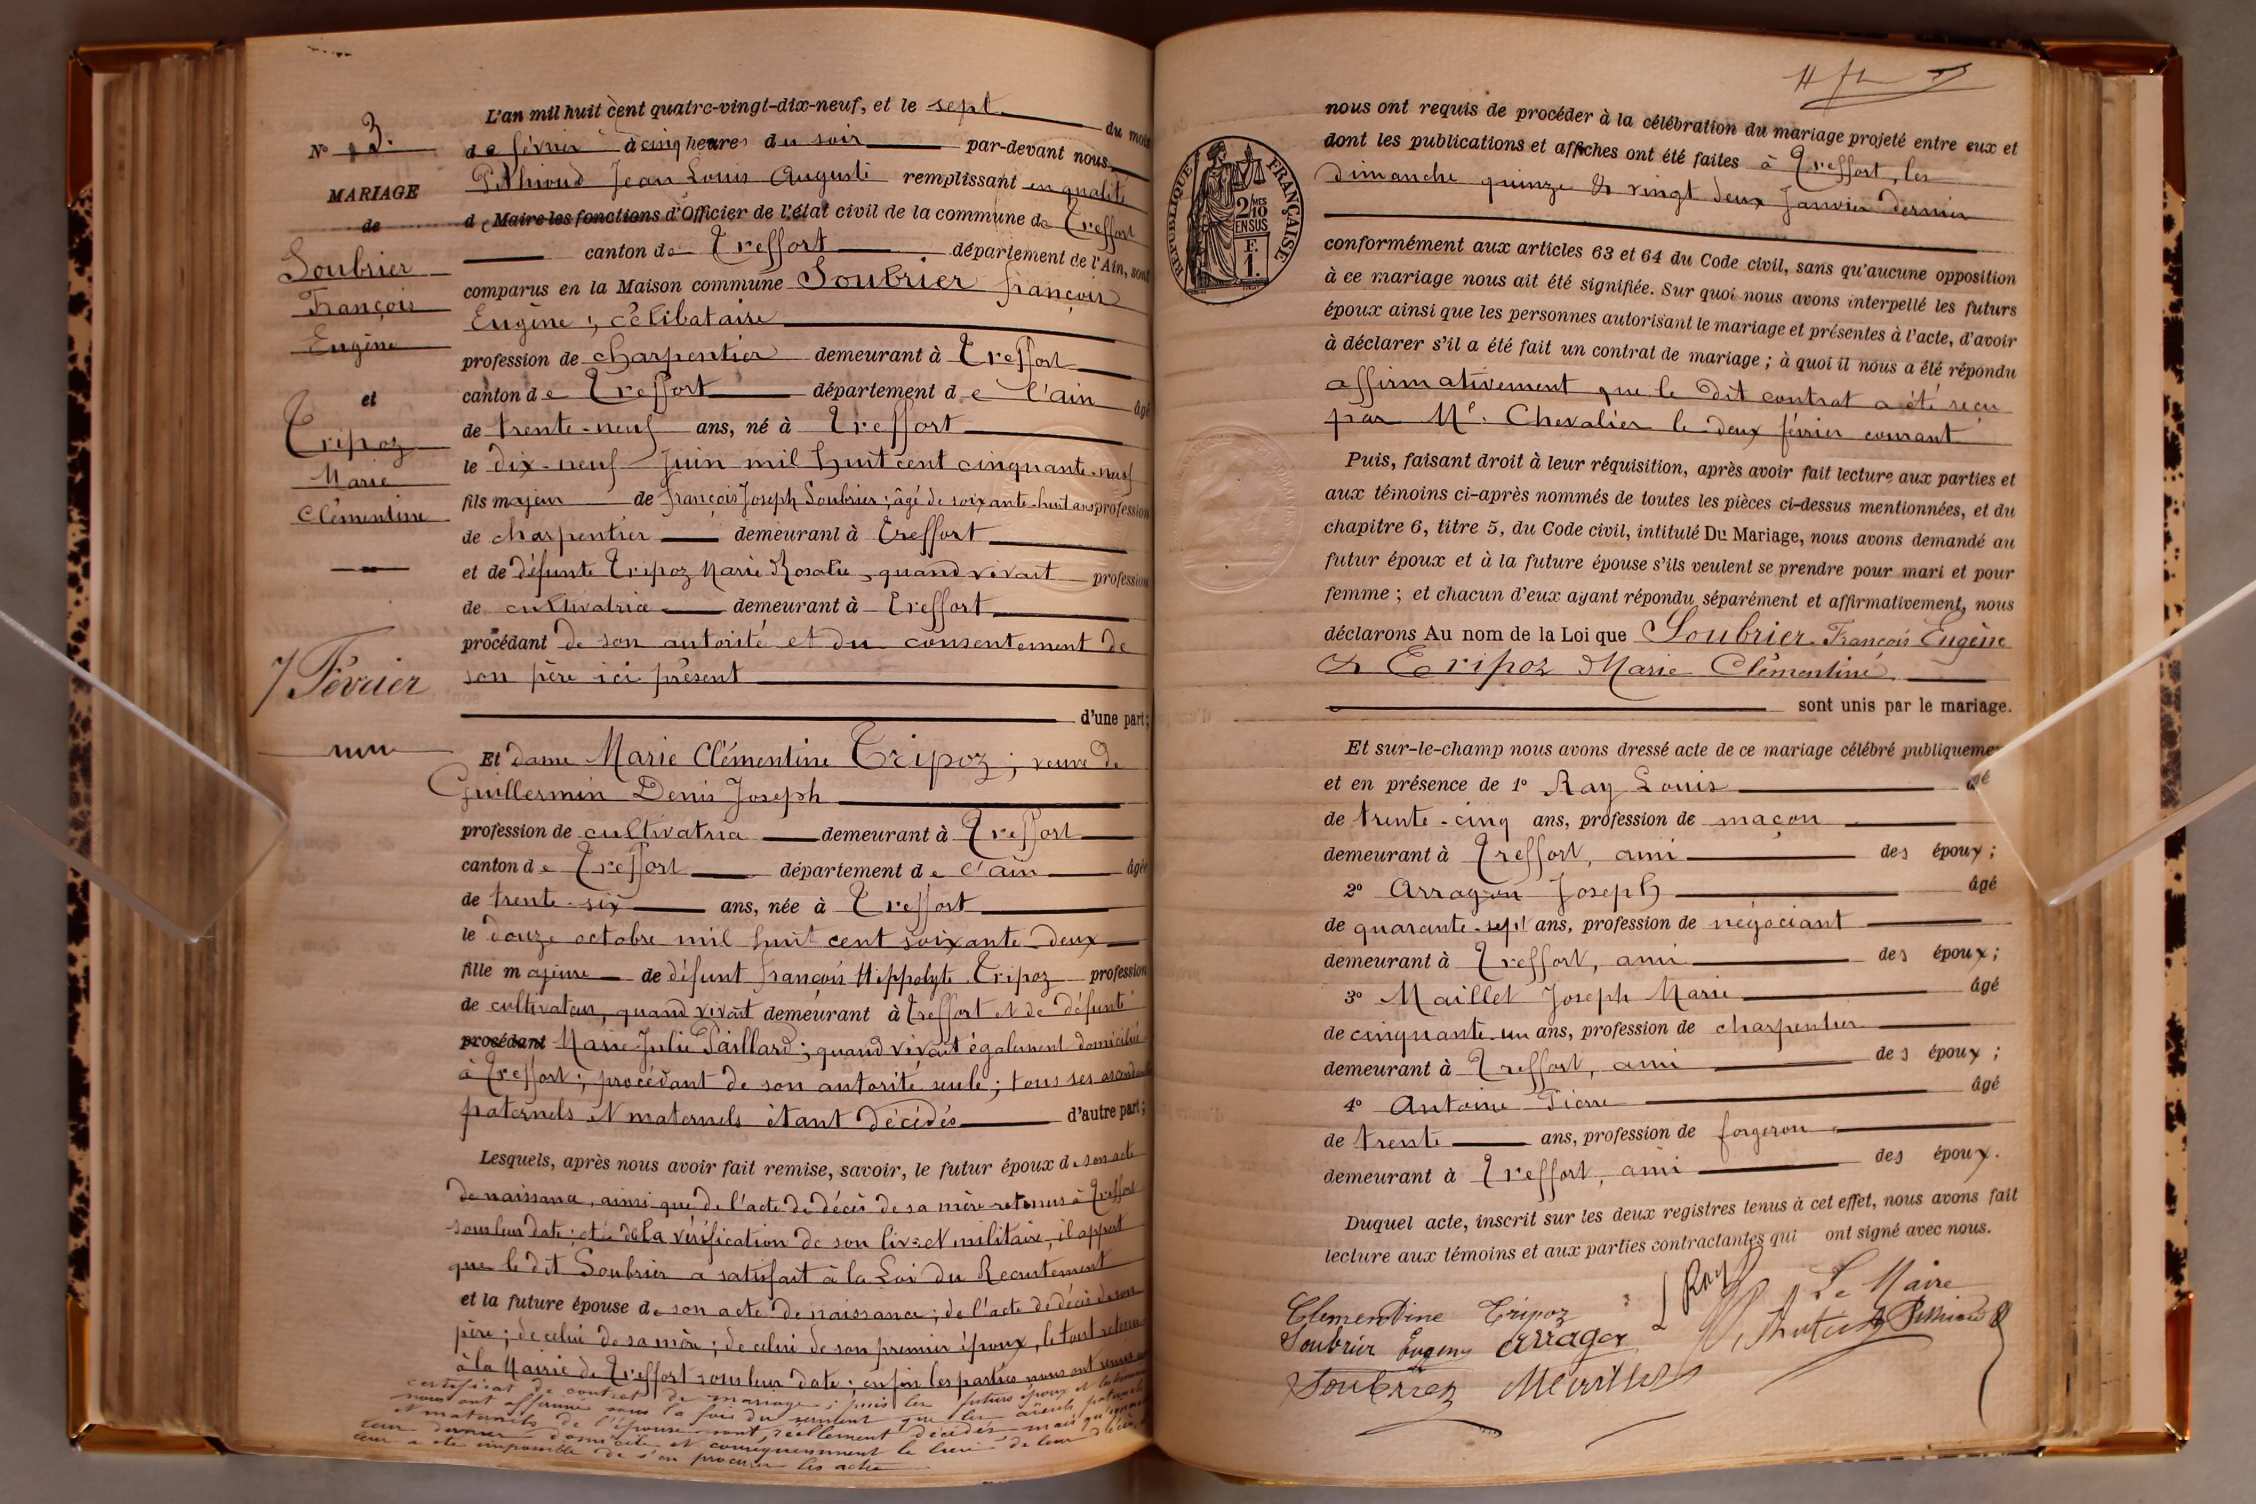 N° 3.
MARIAGE
de
Soubrier
François
Eugène
et
Tripoz
Marie
Clémentine
7 Février
L'an mil huit cent quatre-vingt-dix-neuf, et le sept du mois
de février à cinq heures du soir par-devant nous,
Pithioud Jean Louis Auguste remplissant en qualité
de Maire les fonctions d'Officier de l'état civil de la commune de Treffort
canton de Treffort département de l'Ain, sont
comparus en la Maison commune Soubrier françois
Eugène ; célibataire
profession de charpentier demeurant à Treffort
canton de Treffort département de l'ain âgé
de trente-neuf ans, né à Treffort
le dix-neuf Juin mil huit cent cinquante-neuf
fils majeur de françois Joseph Soubrier ; âgé de soixante-huit ans profession
de charpentier demeurant à Treffort
et de défunte Tripoz Marie Rosalie, quand vivait profession
de cultivatrice demeurant à Treffort
procédant de son autorité et du consentement de
son père ici présent
d'une part;
Et dame Marie Clémentine Tripoz ; veuve de
Guillermin Denis Joseph
profession de cultivatrice demeurant à Treffort
canton de Treffort département de l'ain âgée
de trente-six ans, née à Treffort
le douze octobre mil huit cent soixante-deux
fille majeure de défunt françois Hippolyte Tripoz profession
de cultivateur, quand vivait demeurant à Treffort et de défunte
procédant Marie Julie Paillard ; quand vivait également domiciliée
à Treffort ; procédant de son autorité seule ; tous ses ascendants
paternels et maternels étant décédés d'autre part;
Lesquels, après nous avoir fait remise, savoir, le futur époux de son acte
de naissance, ainsi que de l'acte de décès de sa mère retenus à Treffort
sous leur date ; et de la vérification de son livret militaire, il appert
que le dit Soubrier a satisfait à la Loi du Recrutement
et la future épouse de son acte de naissance ; de l'acte de décès de son
père ; de celui de sa mère ; de celui de son premier époux, le tout retenu
à la Mairie de Treffort sous leur date ; enfin les parties nous ont remis un
certificat de contrat de mariage ; puis les futurs époux et les témoins
nous ont affirmé sous la foi du serment que les aïeuls paternels
et maternels de l'épouse sont réellement décédés mais qu'ignorant
leur dernier domicile et conséquemment le lieu de leur décès, il
leur a été impossible de s'en procurer les actes
nous ont requis de procéder à la célébration du mariage projeté entre eux et
dont les publications et affiches ont été faites à Treffort, les
dimanche quinze & vingt deux Janvier dernier
RÉPUBLIQUE FRANÇAISE
2/10 MES
EN SUS
F.
1.
conformément aux articles 63 et 64 du Code civil, sans qu'aucune opposition
à ce mariage nous ait été signifiée. Sur quoi nous avons interpellé les futurs
époux ainsi que les personnes autorisant le mariage et présentes à l'acte, d'avoir
à déclarer s'il a été fait un contrat de mariage ; à quoi il nous a été répondu
affirmativement que le dit contrat a été reçu
par Me. Chevalier le deux février courant
Puis, faisant droit à leur réquisition, après avoir fait lecture aux parties et
aux témoins ci-après nommés de toutes les pièces ci-dessus mentionnées, et du
chapitre 6, titre 5, du Code civil, intitulé Du Mariage, nous avons demandé au
futur époux et à la future épouse s'ils veulent se prendre pour mari et pour
femme ; et chacun d'eux ayant répondu séparément et affirmativement, nous
déclarons Au nom de la Loi que Soubrier François Eugène
& Tripoz Marie Clémentine
sont unis par le mariage.
Et sur-le-champ nous avons dressé acte de ce mariage célébré publiquement
et en présence de 1° Ray Louis âgé
de trente-cinq ans, profession de maçon
demeurant à Treffort, ami des époux ;
2° Arragon Joseph âgé
de quarante-sept ans, profession de négociant
demeurant à Treffort, ami des époux ;
3° Maillet Joseph Marie âgé
de cinquante-un ans, profession de charpentier
demeurant à Treffort, ami des époux ;
4° Antoine Pierre âgé
de trente ans, profession de forgeron
demeurant à Treffort, ami des époux.
Duquel acte, inscrit sur les deux registres tenus à cet effet, nous avons fait
lecture aux témoins et aux parties contractantes qui ont signé avec nous.
Clementine Tripoz L Ray Le Maire
Soubrier Eugene Arragon
Soubrier